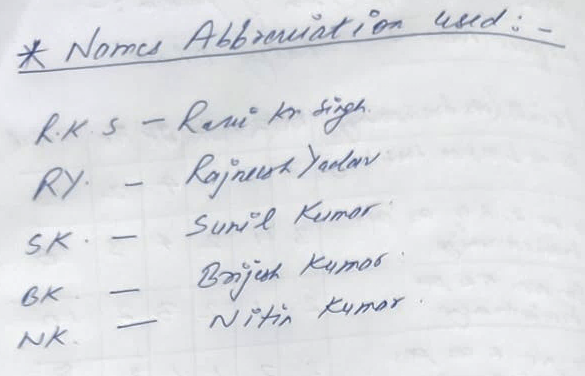 * Names Abbreviation used:-
R.K.S - Ravi Kr Singh.
RY. - Rajneesh Yadav
SK. - Sunil Kumar.
BK - Brijesh Kumar.
NK. - Nitin Kumar.